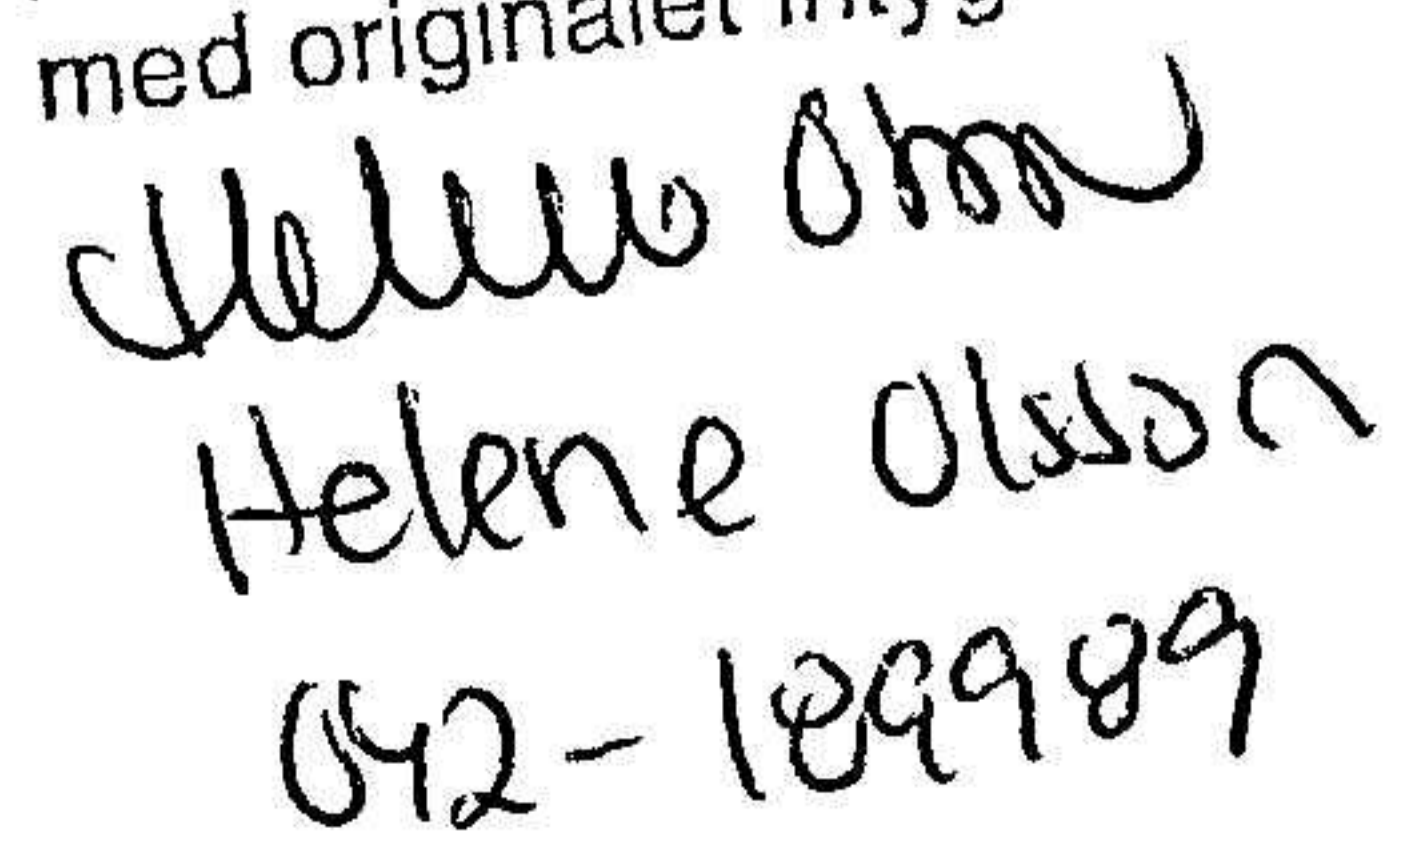 med originalet intyg
Helene Olsson
Helene Olsson
042-189989